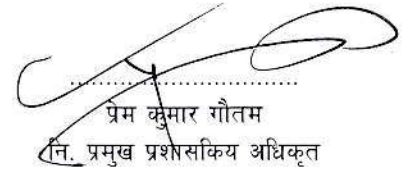 प्रेम कुमार गौतम
नि. प्रमुख प्रशासकिय अधिकृत